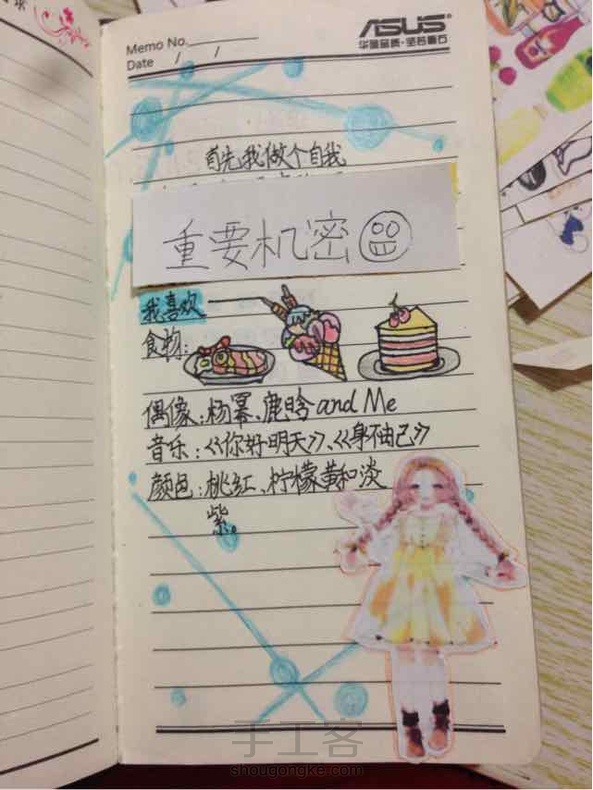 Memo No.
Date / /
ASUS
华硕品质·坚若磐石
首先我做个自我
重要机密
我喜欢
食物:
偶像:杨幂、鹿晗 and Me
音乐:《你好明天》、《身不由己》
颜色:桃红、柠檬黄和淡
紫。
手工客
shougongke.com